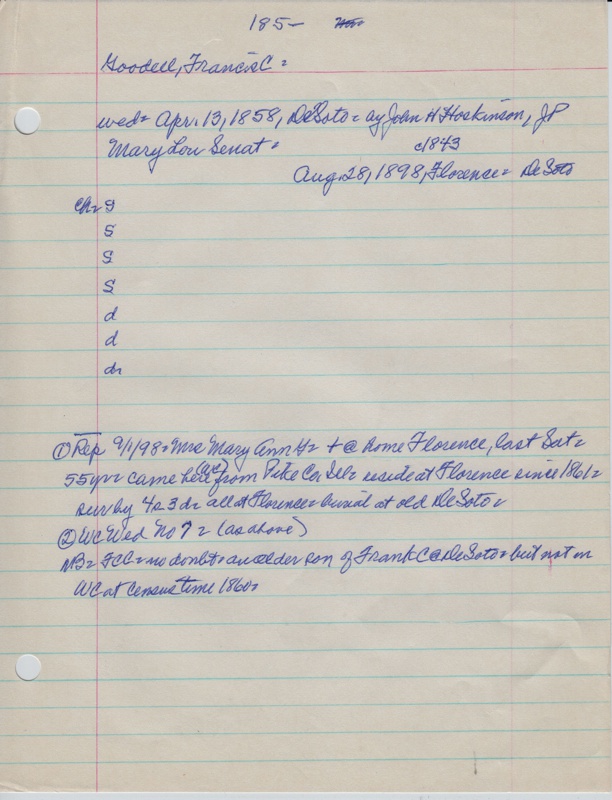 185-
Goodell, Francis C =
wed = Apr. 13, 1858, DeSoto = by John H Hoskinson, JP
Mary Lou Senat = c1843
Aug. 28, 1898, Florence = DeSoto
ch = s
s
s
s
d
d
d=
① Rep 9/1/98 = Mrs Mary Ann G = + @ home Florence, last Sat =
55 yr = came here (WC) from Pike Co Ill = reside at Florence since 1861 =
sur by 4s 3d = all at Florence = burial at old DeSoto =
② WC Wed No 7 = (as above)
NB = FCG = no doubt = an older son of Frank C @ DeSoto = but not in
WC at census time 1860 =